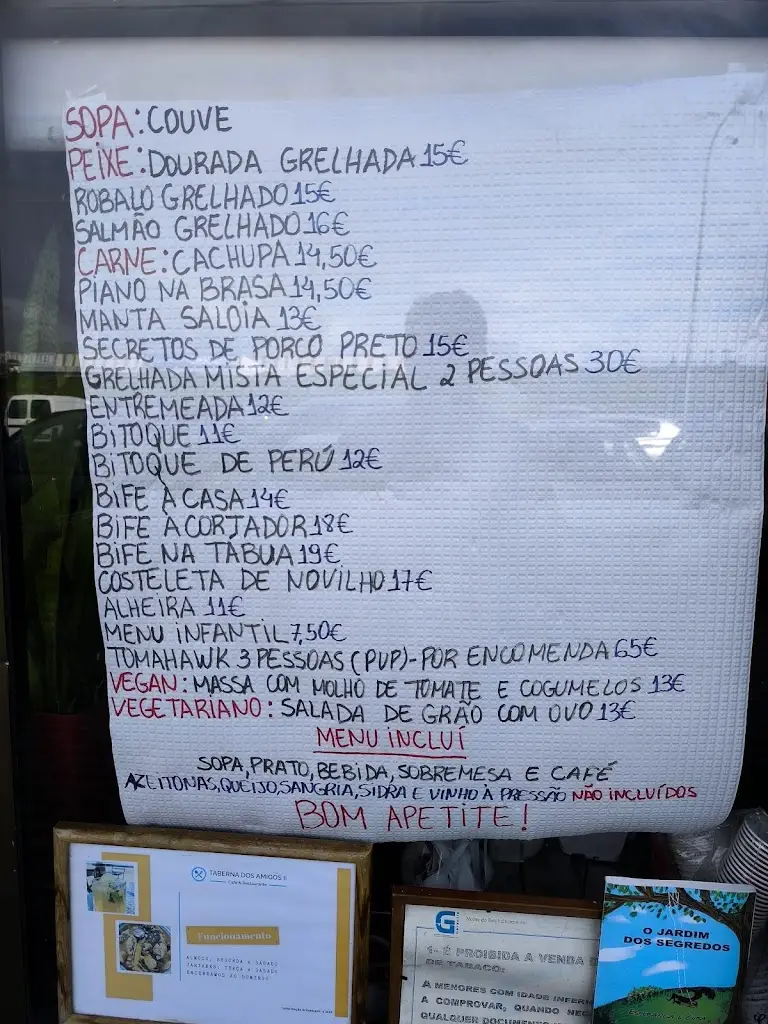 SOPA: COUVE
PEIXE: DOURADA GRELHADA 15€
ROBALO GRELHADO 15€
SALMÃO GRELHADO 16€
CARNE: CACHUPA 14,50€
PIANO NA BRASA 14,50€
MANTA SALOIA 13€
SECRETOS DE PORCO PRETO 15€
GRELHADA MISTA ESPECIAL 2 PESSOAS 30€
ENTREMEADA 12€
BITOQUE 11€
BITOQUE DE PERÚ 12€
BIFE À CASA 14€
BIFE À CORTADOR 18€
BIFE NA TÁBUA 19€
COSTELETA DE NOVILHO 17€
ALHEIRA 11€
MENU INFANTIL 7,50€
TOMAHAWK 3 PESSOAS (PVP)-POR ENCOMENDA 65€
VEGAN: MASSA COM MOLHO DE TOMATE E COGUMELOS 13€
VEGETARIANO: SALADA DE GRÃO COM OVO 13€
MENU INCLUÍ
SOPA, PRATO, BEBIDA, SOBREMESA E CAFÉ
AZEITONAS, QUEIJO, SANGRIA, SIDRA E VINHO À PRESSÃO NÃO INCLUÍDOS
BOM APETITE!
TABERNA DOS AMIGOS II
Funcionamento
ALMOÇO: SEGUNDA A SÁBADO
JANTARES: TERÇA A SÁBADO
ENCERRAMOS AO DOMINGO
G
1- É PROIBIDA A VENDA
DE TABACO:
A MENORES COM IDADE
A COMPROVAR, QUANDO
QUALQUER
O JARDIM
DOS SEGREDOS